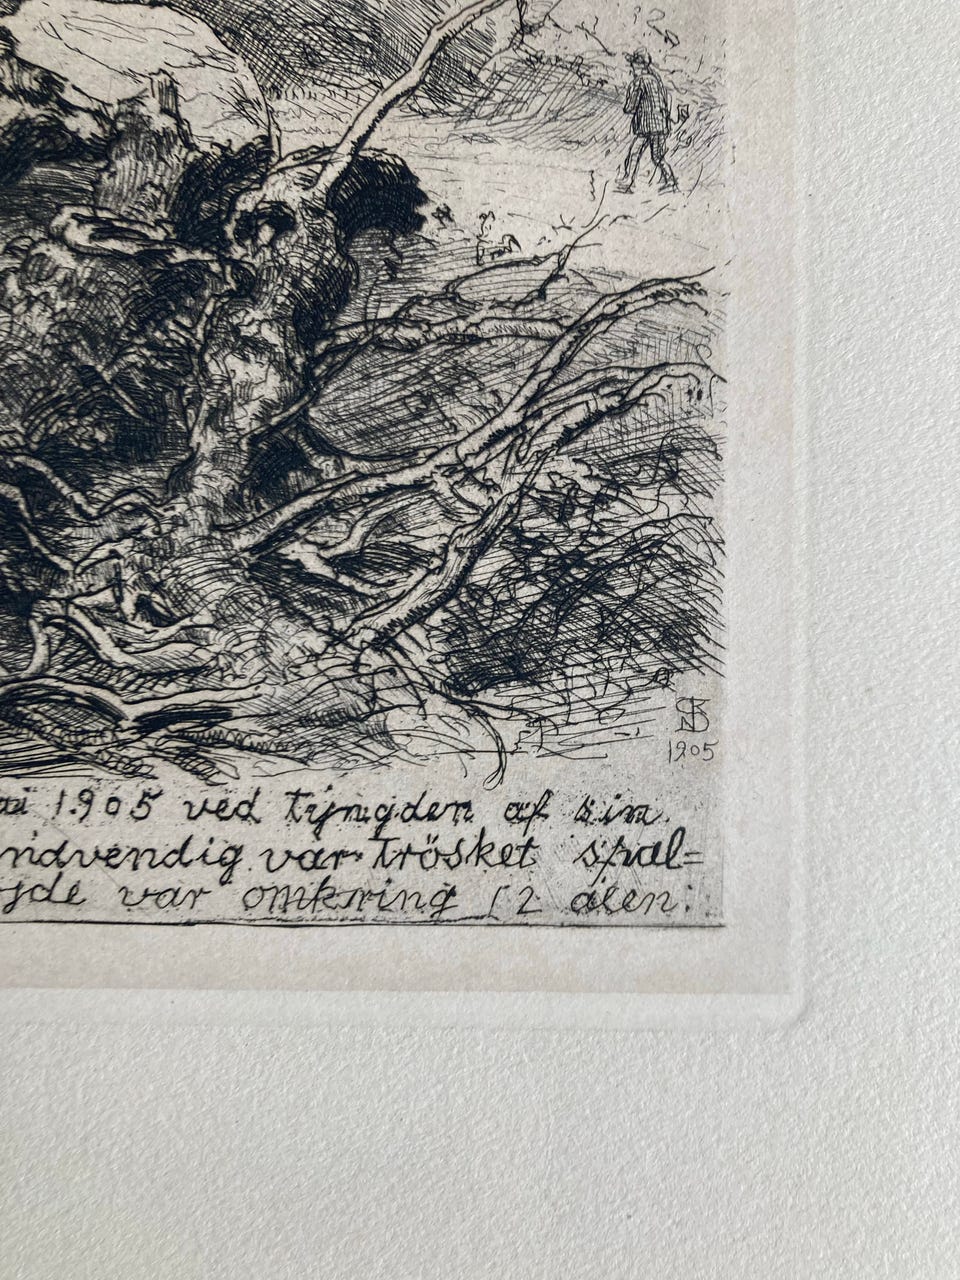 SBN
1905
1905 ved tyngden af sin
indvendig var trösket spal=
var omkring 12 alen: